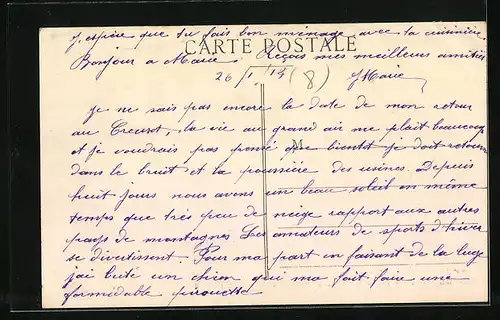 J'espère que tu fais bon ménage avec la cuisinière
CARTE POSTALE
Bonjour a Marie Reçois mes meilleurs amitiés
26/1/14 (8) Marie
je ne sais pas encore la date de mon retour
au Creusot, la vie au grand air me plait beaucoup
et je voudrais pas pensé que bientot je doit retourner
dans le bruit et la poussiière des usines. Depuis
huit jours nous avons un beau soleil en même
temps que très peu de neige rapport aux autres
pays de montagnes Les amateurs de sports d'hiver
se divertissent. Pour ma part en faisant de la luge
j'ai buté un chien qui ma fait faire une
formidable pirouette